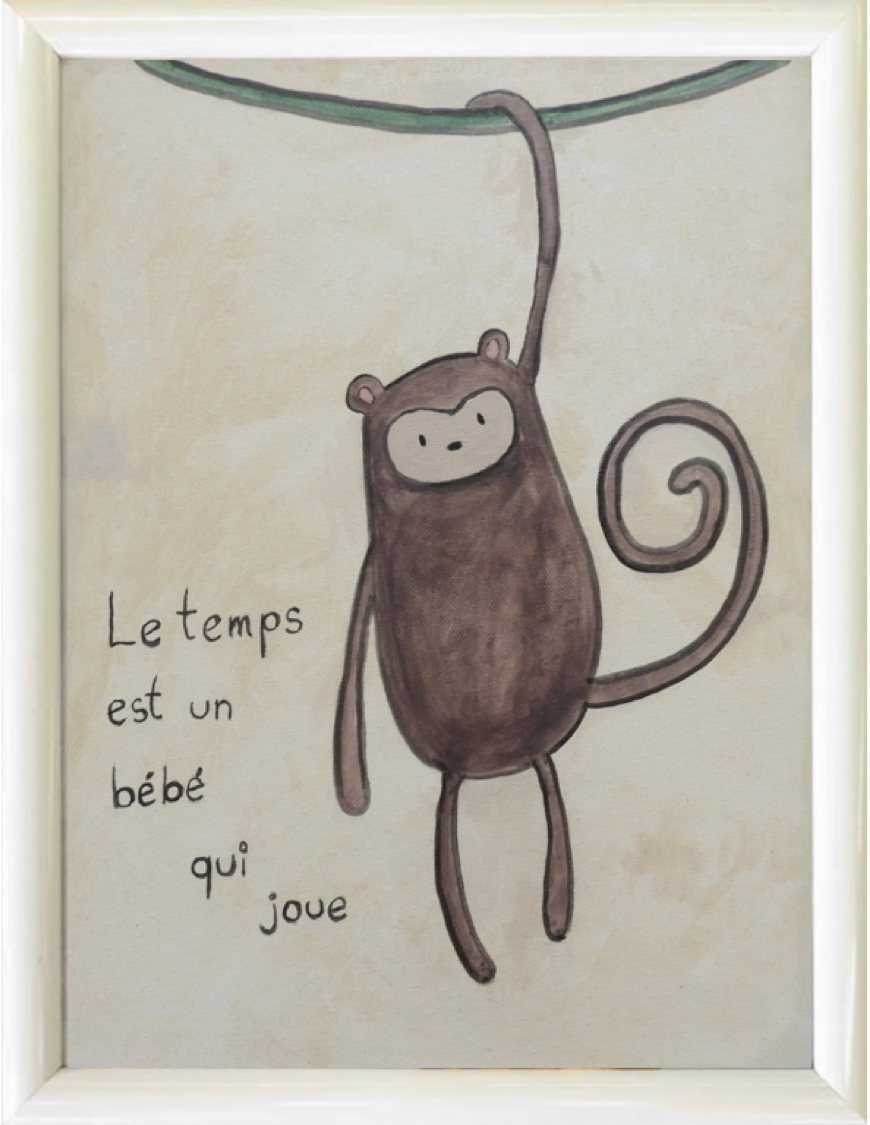 Le temps
est un
bébé
qui
joue